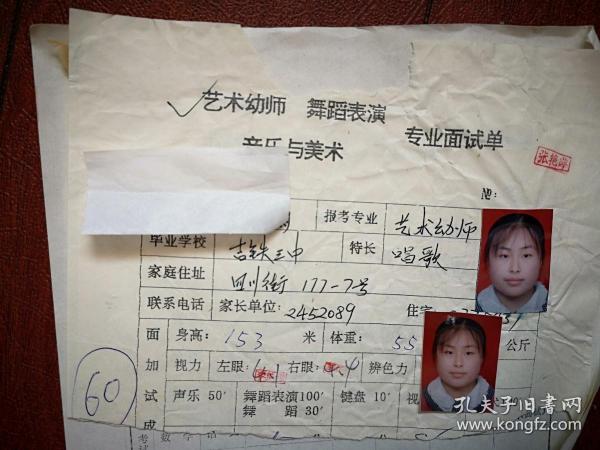 艺术幼师 舞蹈表演
音乐与美术 专业面试单
张艳萍
报考专业 艺术幼师
毕业学校 吉铁三中 特长 唱歌
家庭住址 四川街 177-7号
联系电话 家长单位: 2452089 住宅
面 身高: 153 米 体重: 55 公斤
加 视力 左眼: 右眼: 辨色力
试 声乐 50′ 舞蹈表演100′ 键盘 10′ 视
舞 蹈 30′
成
60
孔夫子旧书网
book.kongfz.com